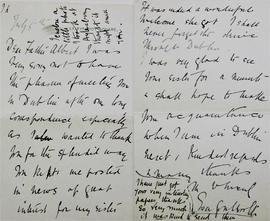 July
Dear Father Albert I was
very sorry not to have
the pleasure of meeting you
in Dublin after our long
correspondence especially
as I wanted to thank
you for the splendid way
you kept me posted
in news of great
interest for my sister
It was indeed a wonderful
welcome she got I shall
never forget the drive
through Dublin
I was very glad to see
your sister for a moment
I shall hope to make
your acquaintance
when I am in Dublin
next. Kindest regards
& many thanks
I have just got
the very interesting
paper thank you
so very much
it was good to send them